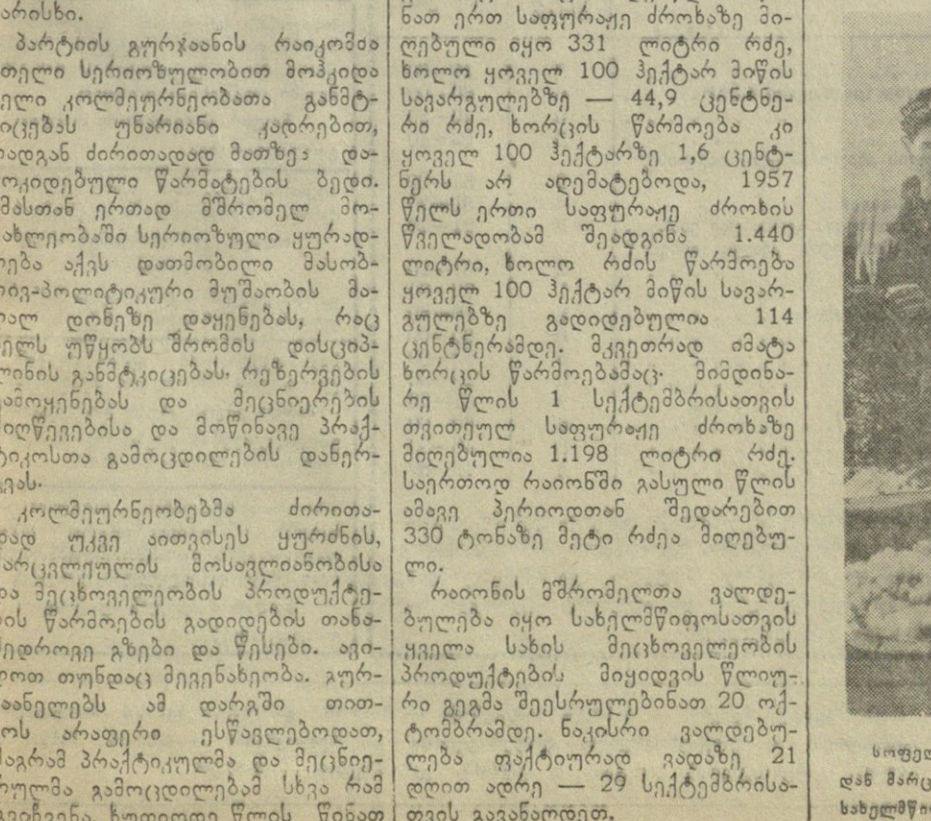 არისხი.
პარტიის გურჯაანის რაიკომმა
თელი სერიოზულობით მოჰკიდა
ელი კოლმეურნეობათა განმტ-
იცებას უნარიანი კადრებით,
ადგან ძირითადად მათზეა და-
ოკიდებული წარმატების ბედი.
მასთან ერთად მშრომელ მო-
ახლეობაში სერიოზული ყურად-
ღება აქვს დათმობილი მასობ-
რივ-პოლიტიკური მუშაობის მა-
ღალ დონეზე დაყენებას, რაც
ელს უწყობს შრომის დისციპ-
ლინის განმტკიცებას. რეზერვების
გამოყენებას და მეცნიერების
მიღწევებისა და მოწინავე პრაქ-
ტიკოსთა გამოცდილების დანერ-
გვას.
კოლმეურნეობებმა ძირითა-
დად უკვე აითვისეს ყურძნის,
არცვლეულის მოსავლიანობისა
და მეცხოველეობის პროდუქტე-
ის წარმოების გადიდების თანა-
ედროვე გზები და წესები. ავი-
ღოთ თუნდაც მევენახეობა. გურ-
აანელებს ამ დარგში თით-
ოს არაფერი ესწავლებოდათ,
აგრამ პრაქტიკულმა და მეცნიე-
რულმა გამოცდილებამ სხვა რამ
გვიჩვენა. ხუთიოდე წლის წინათ
ნათ ერთ საფურაჟე ძროხაზე მი-
ღებული იყო 331 ლიტრი რძე,
ხოლო ყოველ 100 ჰექტარ მიწის
სავარგულებზე — 44,9 ცენტნე-
რი რძე, ხორცის წარმოება კი
ყოველ 100 ჰექტარზე 1,6 ცენტ-
ნერს არ აღემატებოდა, 1957
წელს ერთი საფურაჟე ძროხის
წველადობამ შეადგინა 1.440
ლიტრი, ხოლო რძის წარმოება
ყოველ 100 ჰექტარ მიწის სავარ-
გულებზე გადიდებულია 114
ცენტნერამდე. მკვეთრად იმატა
ხორცის წარმოებამაც. მიმდინა-
რე წლის 1 სექტემბრისათვის
თვითეულ საფურაჟე ძროხაზე
მიღებულია 1.198 ლიტრი რძე.
საერთოდ რაიონში გასული წლის
ამავე პერიოდთან შედარებით
330 ტონაზე მეტი რძეა მიღებუ-
ლი.
რაიონის მშრომელთა ვალდე-
ბულება იყო სახელმწიფოსათვის
ყველა სახის მეცხოველეობის
პროდუქტების მიყიდვის წლიუ-
რი გეგმა შეესრულებინათ 20 ოქ-
ტომბრამდე. ნაკისრი ვალდებუ-
ლება ფაქტიურად ვადაზე 21
დღით ადრე — 29 სექტემბრისა-
თვის გავანაღდეთ.
სოფელ
დან მარც
სახელმწი